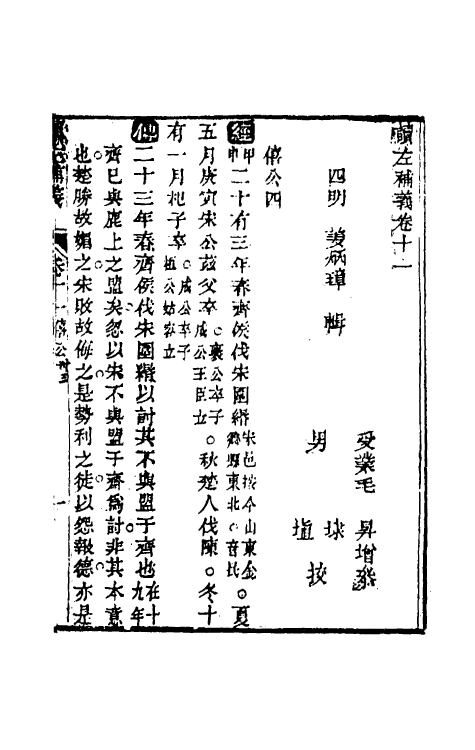 讀左補義卷十一
四明 姜炳璋 輯
受業毛 昇增參
男 球 埴 校
僖公四
經甲申二十有三年春齊侯伐宋圍緡宋邑按今山東金鄉縣東北○音民○夏
五月庚寅宋公茲父卒○襄公卒子成公王臣立○秋楚人伐陳○冬十
有一月杞子卒○成公卒子桓公姑容立
傳二十三年春齊侯伐宋圍緡以討其不與盟于齊也在十九年
齊已與鹿上之盟矣忽以宋不與盟于齊爲討非其本意
也楚勝故媚之宋敗故侮之是勢利之徒以怨報德亦是
卷十一 僖公
一